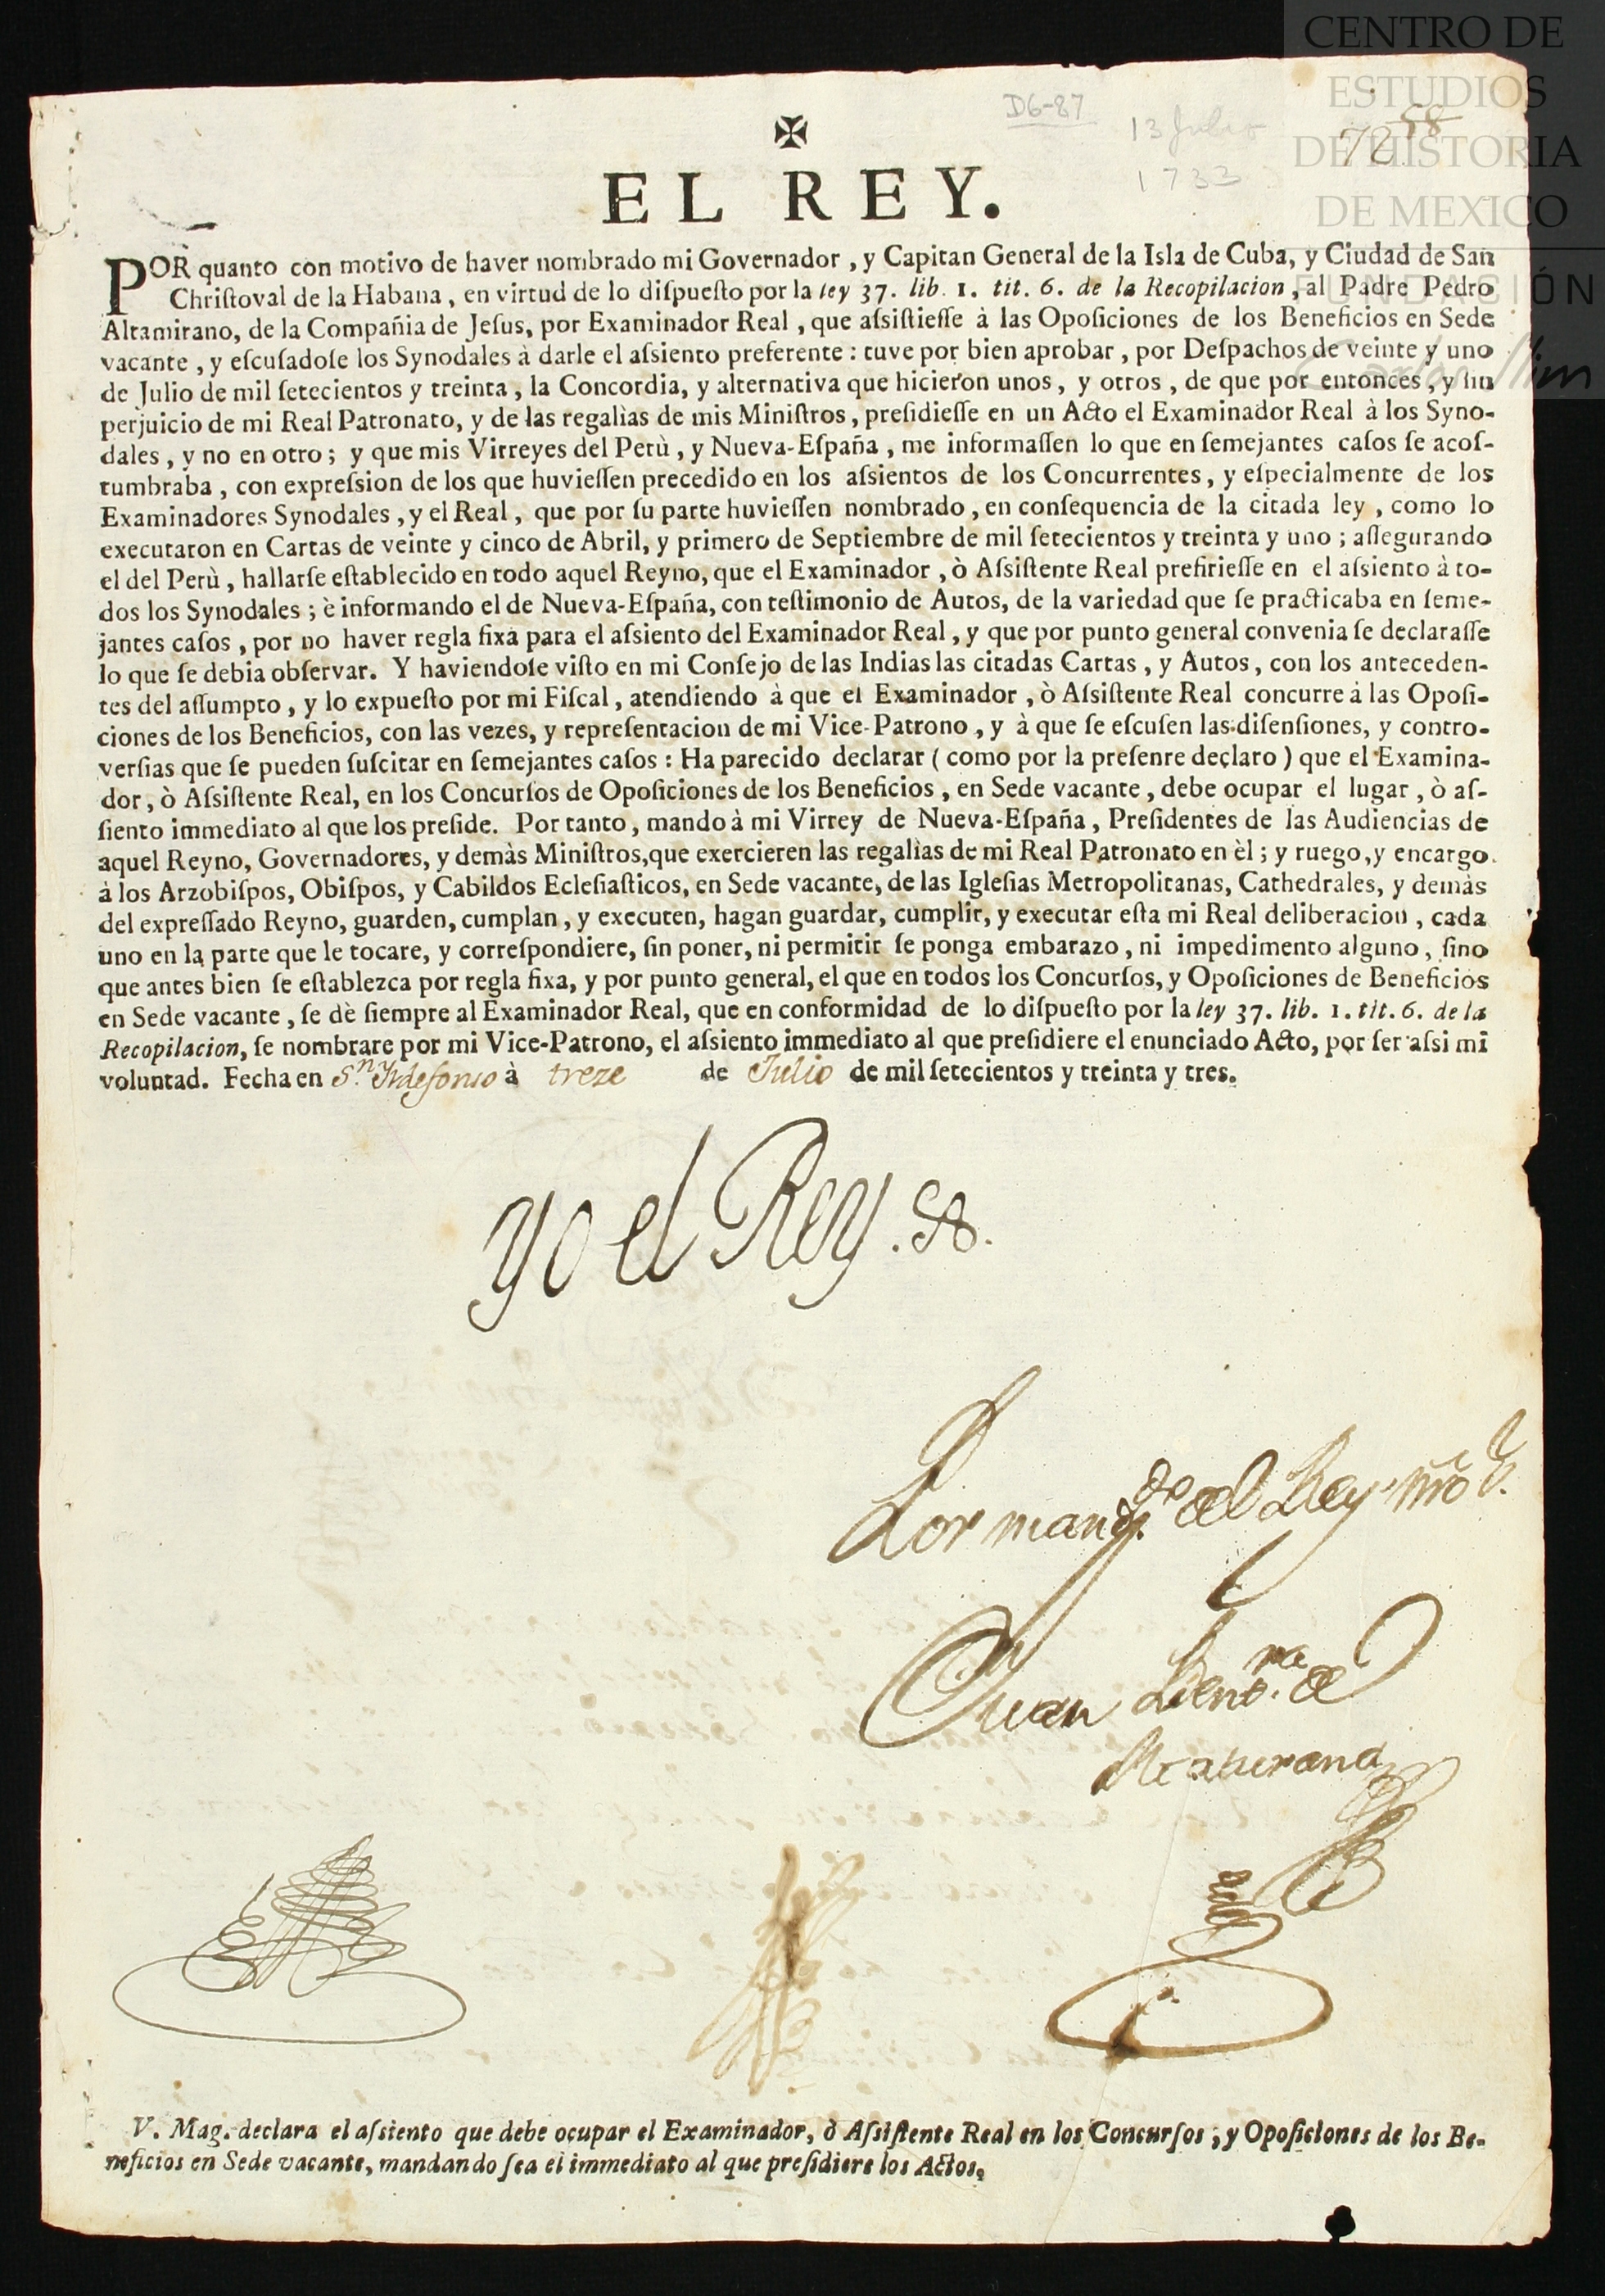 CENTRO DE
ESTUDIOS
DE HISTORIA
DE MEXICO
FUNDACIÓN
Carlos Slim
D6-87
13 Julio
1733
72
58
✠
EL REY.
POR quanto con motivo de haver nombrado mi Governador, y Capitan General de la Isla de Cuba, y Ciudad de San
Chriſtoval de la Habana, en virtud de lo diſpueſto por la ley 37. lib. 1. tit. 6. de la Recopilacion, al Padre Pedro
Altamirano, de la Compañia de Jeſus, por Examinador Real, que aſsiſtieſſe à las Opoſiciones de los Beneficios en Sede
vacante, y eſcuſadoſe los Synodales à darle el aſsiento preferente: tuve por bien aprobar, por Deſpachos de veinte y uno
de Julio de mil ſetecientos y treinta, la Concordia, y alternativa que hicieron unos, y otros, de que por entonces, y ſin
perjuicio de mi Real Patronato, y de las regalìas de mis Miniſtros, preſidieſſe en un Acto el Examinador Real à los Syno-
dales, y no en otro; y que mis Virreyes del Perù, y Nueva-Eſpaña, me informaſſen lo que en ſemejantes caſos ſe acoſ-
tumbraba, con expreſsion de los que huvieſſen precedido en los aſsientos de los Concurrentes, y eſpecialmente de los
Examinadores Synodales, y el Real, que por ſu parte huvieſſen nombrado, en conſequencia de la citada ley, como lo
executaron en Cartas de veinte y cinco de Abril, y primero de Septiembre de mil ſetecientos y treinta y uno; aſſegurando
el del Perù, hallarſe eſtablecido en todo aquel Reyno, que el Examinador, ò Aſsiſtente Real prefirieſſe en el aſsiento à to-
dos los Synodales; è informando el de Nueva-Eſpaña, con teſtimonio de Autos, de la variedad que ſe practicaba en ſeme-
jantes caſos, por no haver regla fixa para el aſsiento del Examinador Real, y que por punto general convenia ſe declaraſſe
lo que ſe debia obſervar. Y haviendoſe viſto en mi Conſejo de las Indias las citadas Cartas, y Autos, con los anteceden-
tes del aſſumpto, y lo expueſto por mi Fiſcal, atendiendo à que el Examinador, ò Aſsiſtente Real concurre à las Opoſi-
ciones de los Beneficios, con las vezes, y repreſentacion de mi Vice-Patrono, y à que ſe eſcuſen las diſenſiones, y contro-
verſias que ſe pueden ſuſcitar en ſemejantes caſos: Ha parecido declarar (como por la preſenre declaro) que el Examina-
dor, ò Aſsiſtente Real, en los Concurſos de Opoſiciones de los Beneficios, en Sede vacante, debe ocupar el lugar, ò aſ-
ſiento immediato al que los preſide. Por tanto, mando à mi Virrey de Nueva-Eſpaña, Preſidentes de las Audiencias de
aquel Reyno, Governadores, y demàs Miniſtros, que exercieren las regalìas de mi Real Patronato en èl; y ruego, y encargo
à los Arzobiſpos, Obiſpos, y Cabildos Ecleſiaſticos, en Sede vacante, de las Igleſias Metropolitanas, Cathedrales, y demàs
del expreſſado Reyno, guarden, cumplan, y executen, hagan guardar, cumplir, y executar eſta mi Real deliberacion, cada
uno en la parte que le tocare, y correſpondiere, ſin poner, ni permitir ſe ponga embarazo, ni impedimento alguno, ſino
que antes bien ſe eſtablezca por regla fixa, y por punto general, el que en todos los Concurſos, y Opoſiciones de Beneficios
en Sede vacante, ſe dè ſiempre al Examinador Real, que en conformidad de lo diſpueſto por la ley 37. lib. 1. tit. 6. de la
Recopilacion, ſe nombrare por mi Vice-Patrono, el aſsiento immediato al que preſidiere el enunciado Acto, por ſer aſsi mi
voluntad. Fecha en Sn. Yldefonso à treze de Julio de mil ſetecientos y treinta y tres.
Yo el Rey.
Por manddo. del Rey nro Sr.
Juan Bentra. de
Maturana
V. Mag. declara el aſsiento que debe ocupar el Examinador, ò Aſsiſtente Real en los Concurſos, y Opoſiciones de los Be-
neficios en Sede vacante, mandando ſea el immediato al que preſidiere los Actos.